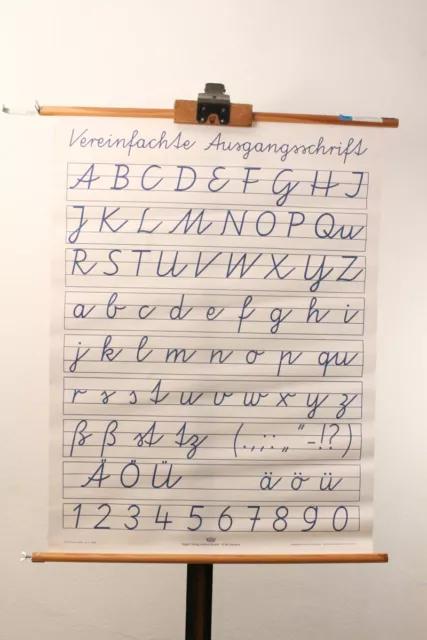 Vereinfachte Ausgangsschrift
A B C D E F G H I
J K L M N O P Qu
R S T U V W X Y Z
a b c d e f g h i
j k l m n o p qu
r s s t u v w x y z
ß ß st tz (.,;:„"-!?)
Ä Ö Ü ä ö ü
1 2 3 4 5 6 7 8 9 0